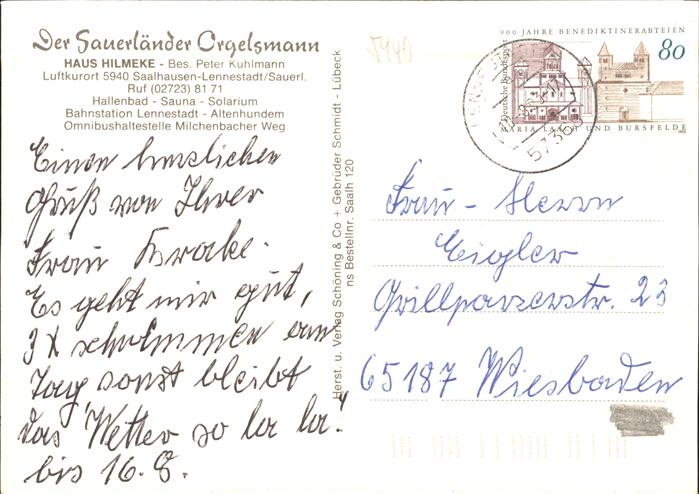 Der Sauerländer Orgelsmann
HAUS HILMEKE - Bes. Peter Kuhlmann
Luftkurort 5940 Saalhausen-Lennestadt/Sauerl.
Ruf (02723) 81 71
Hallenbad - Sauna - Solarium
Bahnstation Lennestadt - Altenhundem
Omnibushaltestelle Milchenbacher Weg
Einen herzlichen
Gruß von Ihrer
Frau Krake.
Es geht mir gut,
3 X schwimmen am
Tag, sonst bleibt
das Wetter so la la."
bis 16. 8.
Herst. u. Verlag Schöning & Co + Gebrüder Schmidt - Lübeck
ns Bestellnr. Saalh 120
5940
900 JAHRE BENEDIKTINERABTEIEN
80
Deutsche Bundespost
MARIA LAACH UND BURSFELDE
57368
Frau - Herrn
Eigler
Grillparzerstr. 23
65187 Wiesbaden